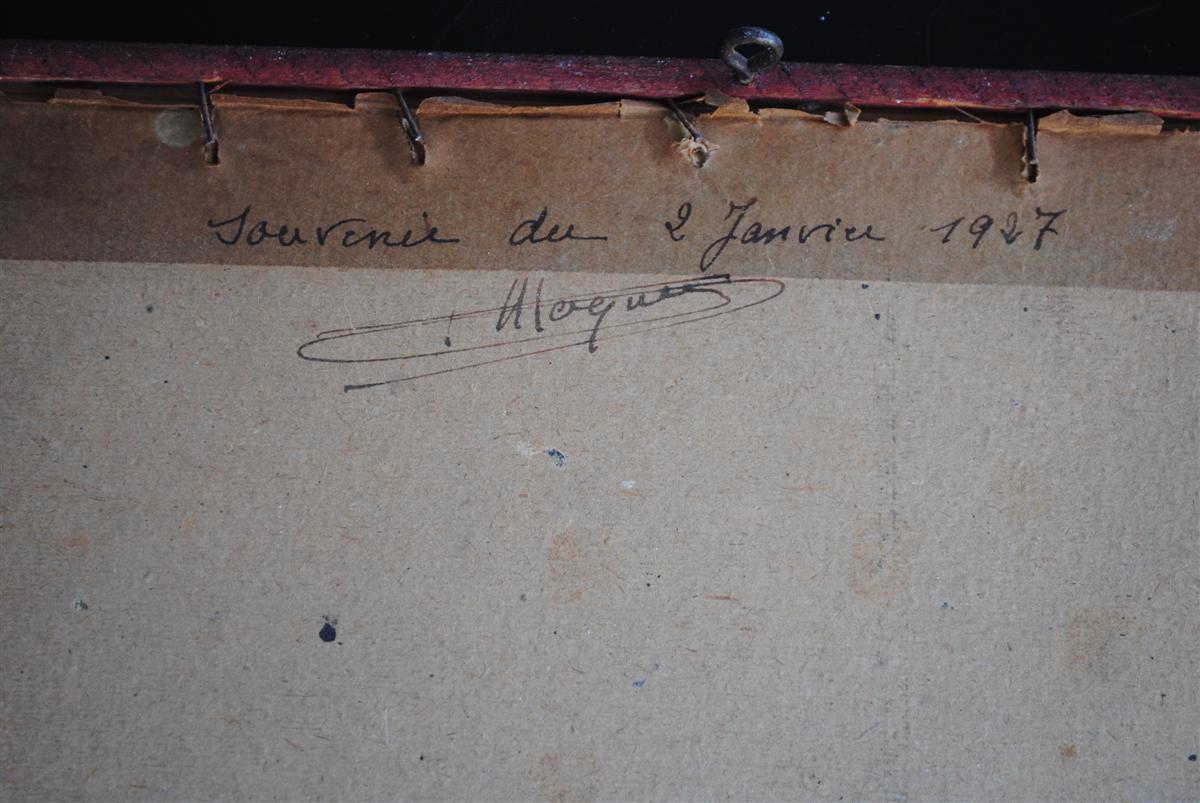 Souvenir du 2 Janvier 1927